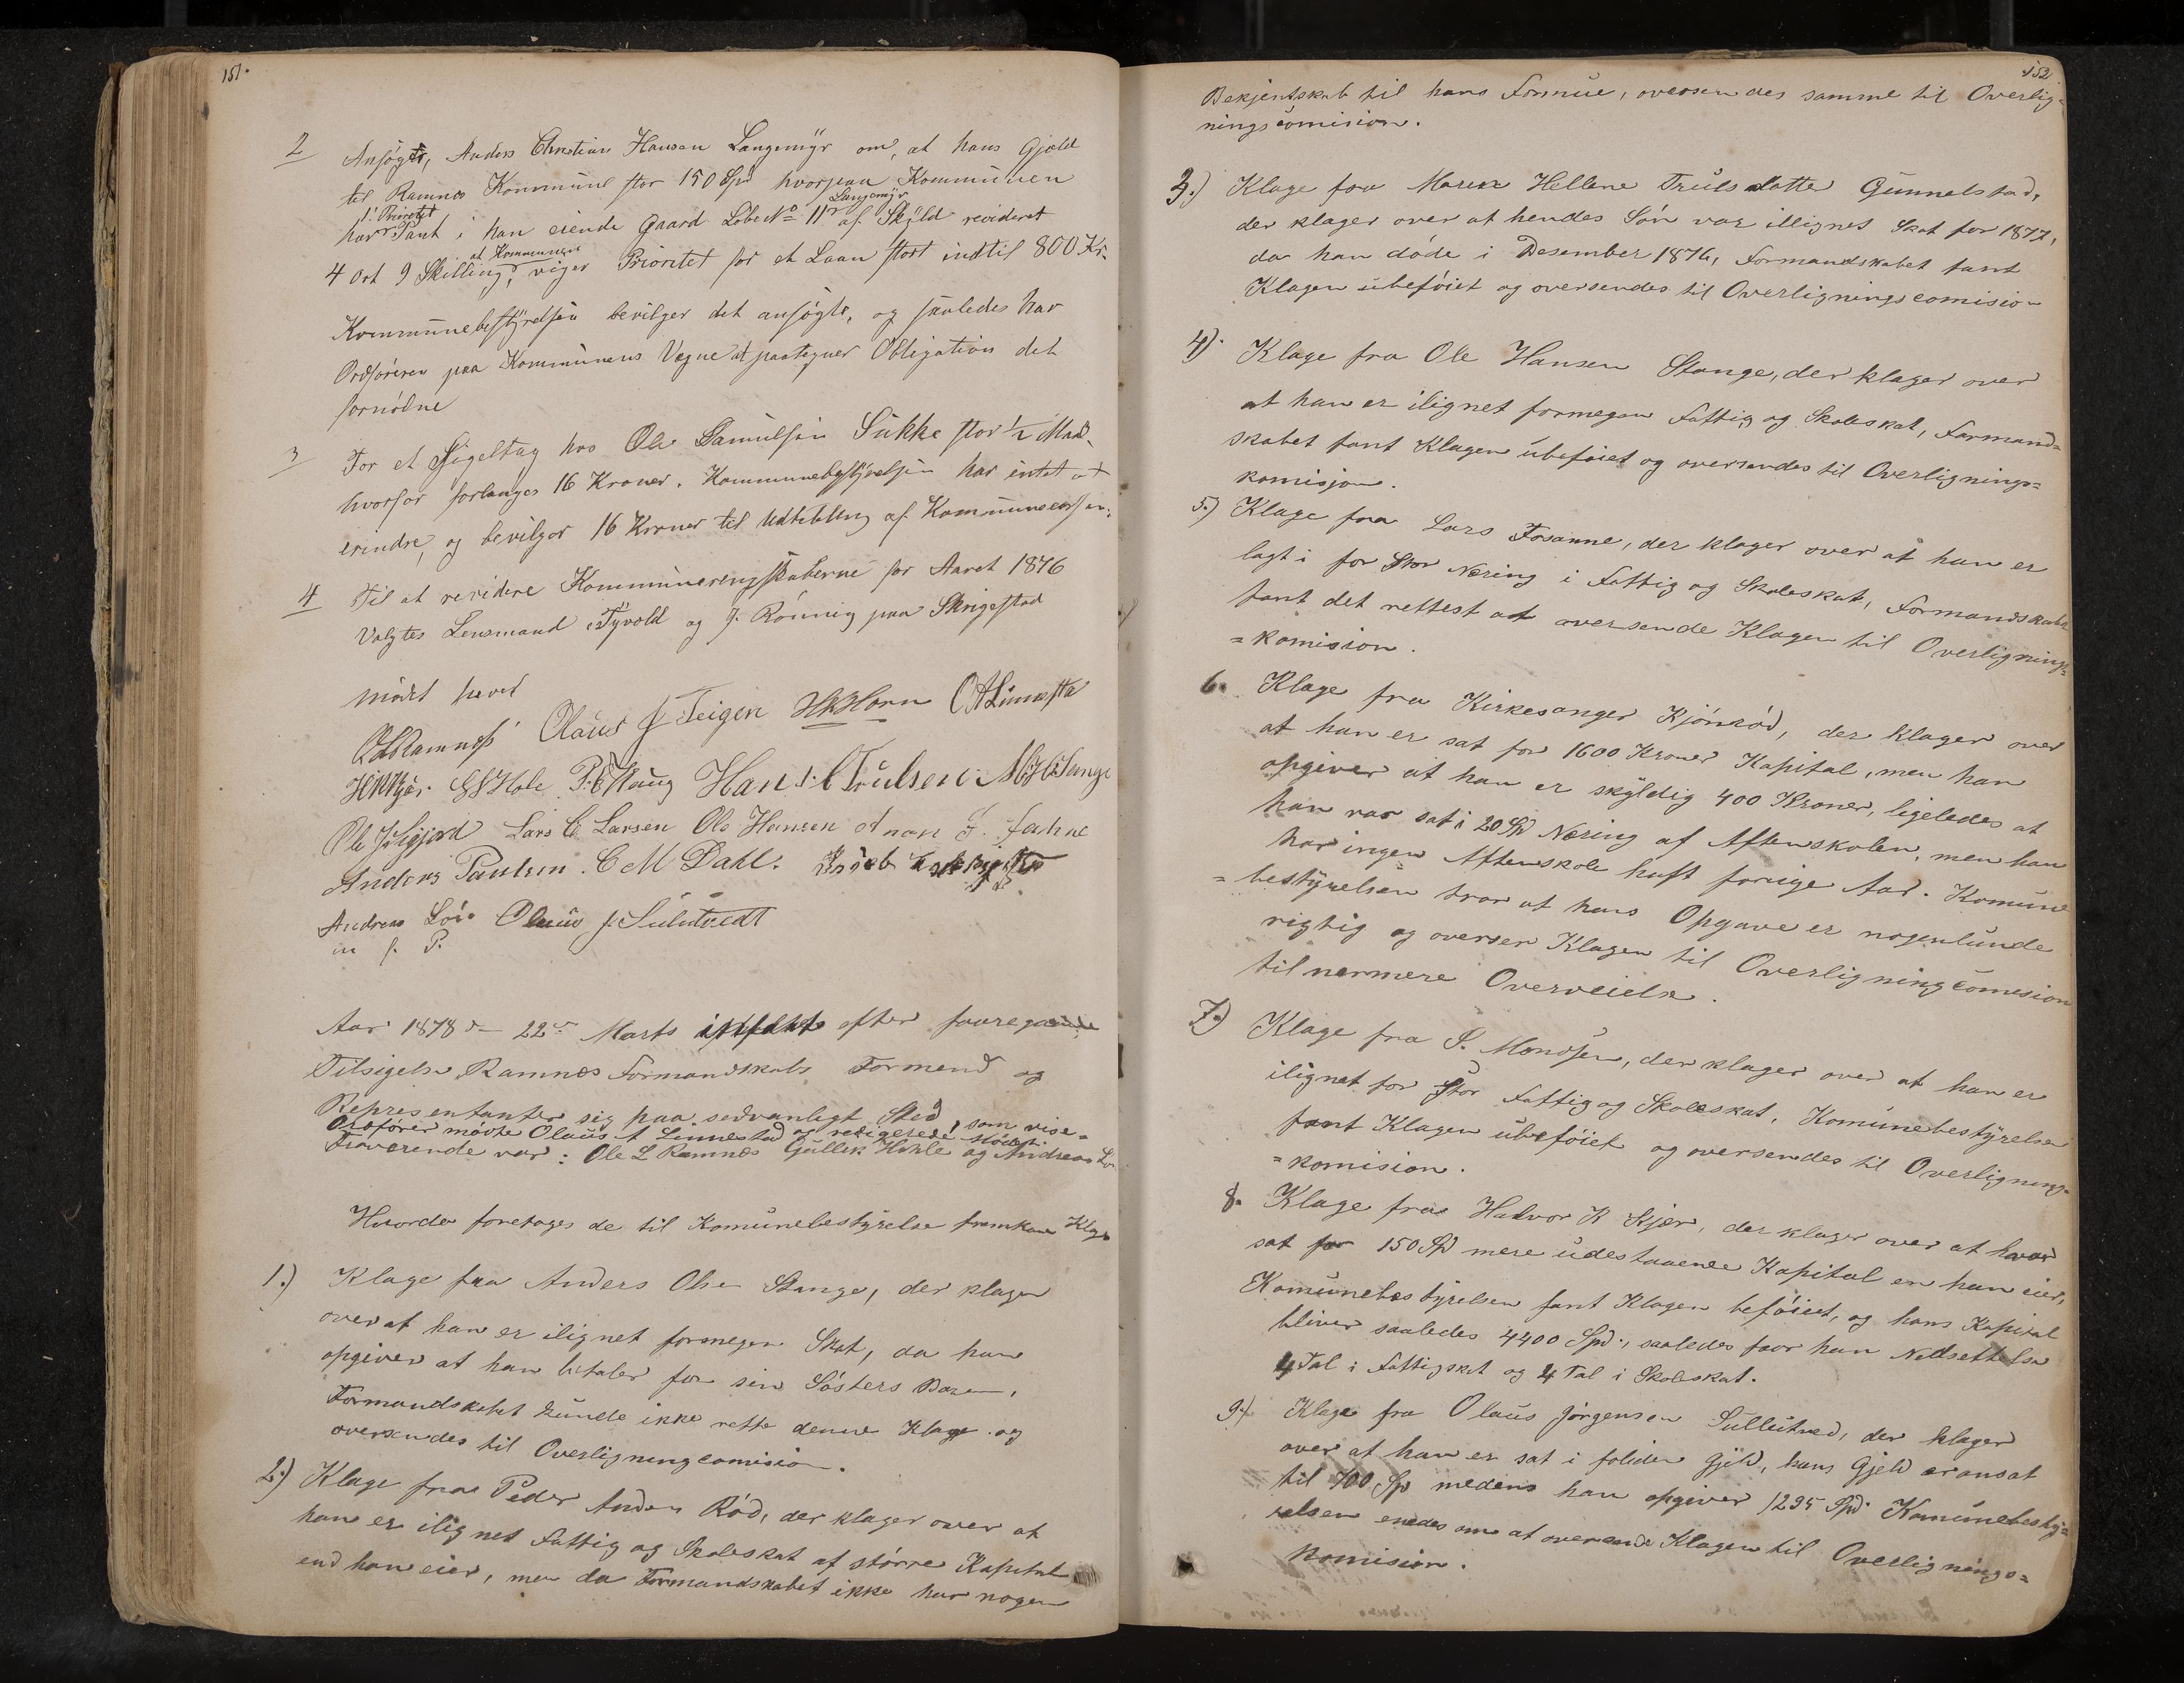 151.
2 Ansøgte, Anders Christian Hansen Langemÿr om, at hans Gjæld
til Ramnes Kommune stor 150 Spd hvorpaa Kommunen
har 1ste Prioritet Pant i han eiende Gaard Løbe No 11 Langemÿr af Skÿld revideret
4 Ort 9 Skilling, at Kommunen viger Prioritet for et Laan stort indtil 800 Kr.
Kommunebestÿrelsen bevilger det ansøgte, og saaledes har
Ordføreren paa Kommunens Vegne at paategner Obligation det
fornødne
3 For et Sigeltag hos Ole Samuelsen Sukke stor 1/2 Maal
hvorfor forlanges 16 Kroner. Kommunebestÿrelsen har intet at
erindre, og bevilger 16 Kroner til Udbetaling af Kommunecassen.
4 Til at revidere Kommuneregnskaberne for Aaret 1876
Valgtes Lensmand Tÿvold og J. Rønnig paa Skrigestad
mødet hævet
OLRamness Olaus J Teigen HKHorn OALinnestad
GSHole P. C Haug Hans. C Trulsen. MHStange
Lars C Larsen Ole Hansen Aron F.
Anders Paulsen. C M Dahl.
Andreas Løve Olaus J. Sulutvedt
m. f. P.
Aar 1878 d. 22de Marts efter foregaaende
Tilsigelse Ramnes Formandskabs Formend og
Representanter sig paa sedvanligt Sted, som vise-
Ordfører mødte Olaus A Linnestad og redigerede Mødet.
Fraværende var: Ole L Ramnes Gullik Hohle og Andreas Lø
Hvorda foretoges de til Komunebestÿrelse fremkom Klage
1.) Klage fra Anders Olsen Stange, der klager
over at han er ilignet formegen Skat, da han
opgiver at han betaler for sin Søsters Baren,
Formandskabet kunde ikke rette denne Klage og
oversendes til Overligningcomision.
2.) Klage fra Peder Anders Rød, der klager over at
han er ilignet Fattig og Skoleskat af større Kapital
end han eier, men da Formandskabet ikke har nogen
152
Bekjentskab til hans Formue, oversendes samme til Overlig-
ningscomision.
3.) Klage fra Maren Hellene Trulsdatter Gunnelstad,
der klager over at hendes Søn var illignet Skat for 1877,
da han døde i Desember 1876, Formandskabet fant
Klagen ubeføiet og oversendes til Overligningscomision
4). Klage fra Ole Hansen Stange, der klager over
at han er ilignet formegen Fattig og Skoleskat, Formand=
skabet fant Klagen ubeføiet og oversendes til Overlignings=
komisjon.
5.) Klage fra Lars Fosanne, der klager over at han er
lagt i for Stor Næring i Fattig og Skoleskat, Formandskabet
fant det rettest at oversende Klagen til Overlignings=
=komision.
6. Klage fra Kirkesanger Kjónnød, der klager over
at han er sat for 1600 Kroner Kapital, men han
opgiver at han er skÿldig 400 Kroner, ligeledes at
han var sat i 20 Spd Næring af Aftenskolen, men han
har ingen Aftenskole haft forrige Aar. Komune
=bestÿrelsen tror at hans Opgave er nogenlunde
rigtig og overser Klagen til Overligningcomesion
til nærmere Overveielse.
7.) Klage fra S. Mondsen, der klager over at han er
ilignet for Stor Fattig og Skoleskat. Komunebestÿrelse
fant Klagen ubeføiet og oversendes til Overlignings=
=komision.
8. Klage fra Halvor K Kjær, der klager over at hvar
sat for 150 Spd mere udestaaende Kapital en han eier,
Komunebestÿrelsen fant Klagen beføiet, og hans Kapital
bliver saaledes 4400 Spd., saaledes faar han Nedsettelse
4 Tal i Fattigskat og 4 Tal i Skoleskat.
9.) Klage fra Olaus Jørgensen Sullutved, der klager
over at han er sat i for liden Gjeld, hans Gjeld er ansat
til 700 Sp medens han opgiver 1295 Spd. Komunebestÿ=
relsen enedes om at oversende Klagen til Overlignings=
komision.